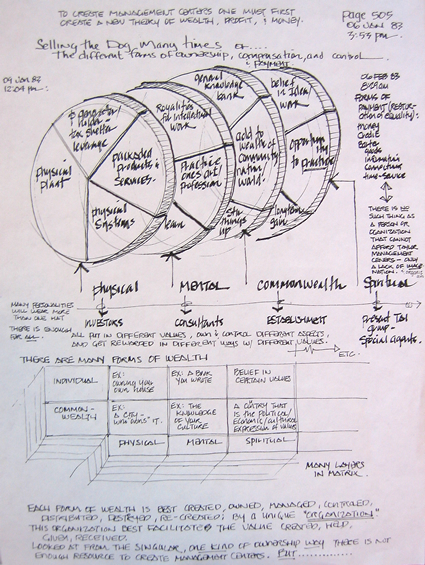 TO CREATE MANAGEMENT CENTERS ONE MUST FIRST
CREATE A NEW THEORY OF WEALTH, PROFIT, & MONEY.
Page 505
06 JAN 83
3:55 PM
Selling the Dog Many times or....
The different forms of ownership, compensation, and control
PAYMENT
09 JAN 83
12:04 PM
to generator/
tax shelter
leverage
Physical
Plant
Packaged
Products &
Services.
Physical
Systems
Royalties
for intellectual
work
Practice
ones art/
Profession
learn
general
knowledge
bank
add to
wealth of
community
nation
world.
stir
things
up
belief
in Idea/
work
opportunity
to practice
longterm
gain
06 FEB 83
FORMS OF
PAYMENT
money
credit
barter
goods
information
connections
time-service
THERE IS NO
SUCH THING AS
A PERSON OR
ORGANIZATION
THAT CANNOT
AFFORD
MANAGEMENT
CENTERS - ONLY
A LACK OF IMAGINATION.
Physical
MENTAL
Commonwealth
Spiritual
MANY PERSONALITIES
WILL WEAR MORE
THAN ONE HAT
THERE IS ENOUGH
FOR ALL.
INVESTORS
Consultants
ESTABLISHMENT
Present
group -
Special agents.
ALL PUT IN DIFFERENT VALUES, OWN & CONTROL DIFFERENT ASPECTS,
AND GET REWARDED IN DIFFERENT WAYS w/ DIFFERENT VALUES.
ETC.
THERE ARE MANY FORMS OF WEALTH
INDIVIDUAL
EX:
owning your
own house
EX: A BOOK
YOU WROTE
BELIEF IN
CERTAIN VALUES
COMMON-
WEALTH
EX:
A CITY -
who "owns" IT.
EX: THE
KNOWLEDGE
OF YOUR
CULTURE
A COUNTRY THAT
IS THE POLITICAL/
ECONOMIC/CULTURAL
EXPRESSION OF VALUES
PHYSICAL
MENTAL
SPIRITUAL
MANY LAYERS
IN MATRIX.
EACH FORM OF WEALTH IS BEST CREATED, OWNED, MANAGED, CONTROLLED,
DISTRIBUTED, DESTROYED, RE-CREATED; BY A UNIQUE "ORGANIZATION"
THIS ORGANIZATION BEST FACILITATES THE VALUE CREATED, HELD,
GIVEN, RECEIVED.
LOOKED AT FROM THE SINGULAR, ONE KIND OF OWNERSHIP WAY THERE IS NOT
ENOUGH RESOURCE TO CREATE MANAGEMENT CENTERS. BUT